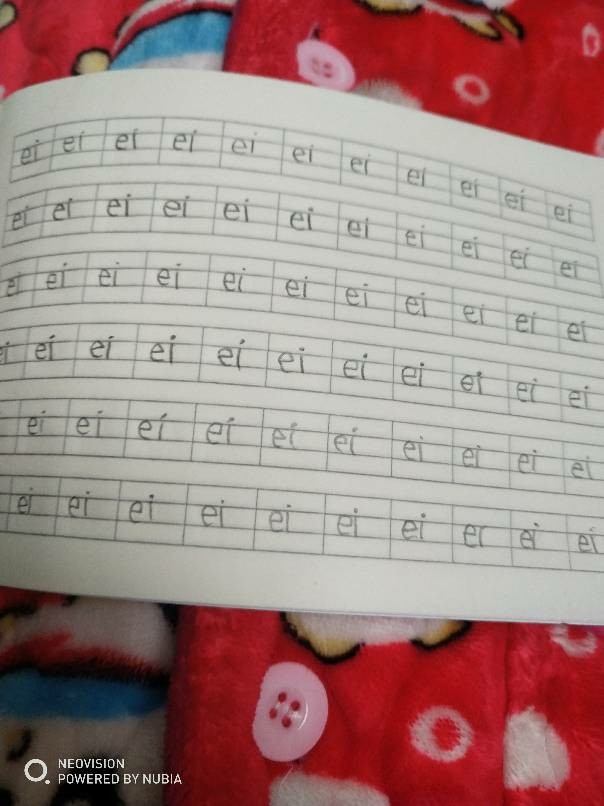 ei ei ei ei ei ei ei ei ei ei ei
ei ei ei ei ei ei ei ei ei ei ei
ei ei ei ei ei ei ei ei ei ei ei
ei ei ei ei ei ei ei ei ei ei
ei ei ei ei ei ei ei ei ei ei
ei ei ei ei ei ei ei ei ei ei
NEOVISION
POWERED BY NUBIA